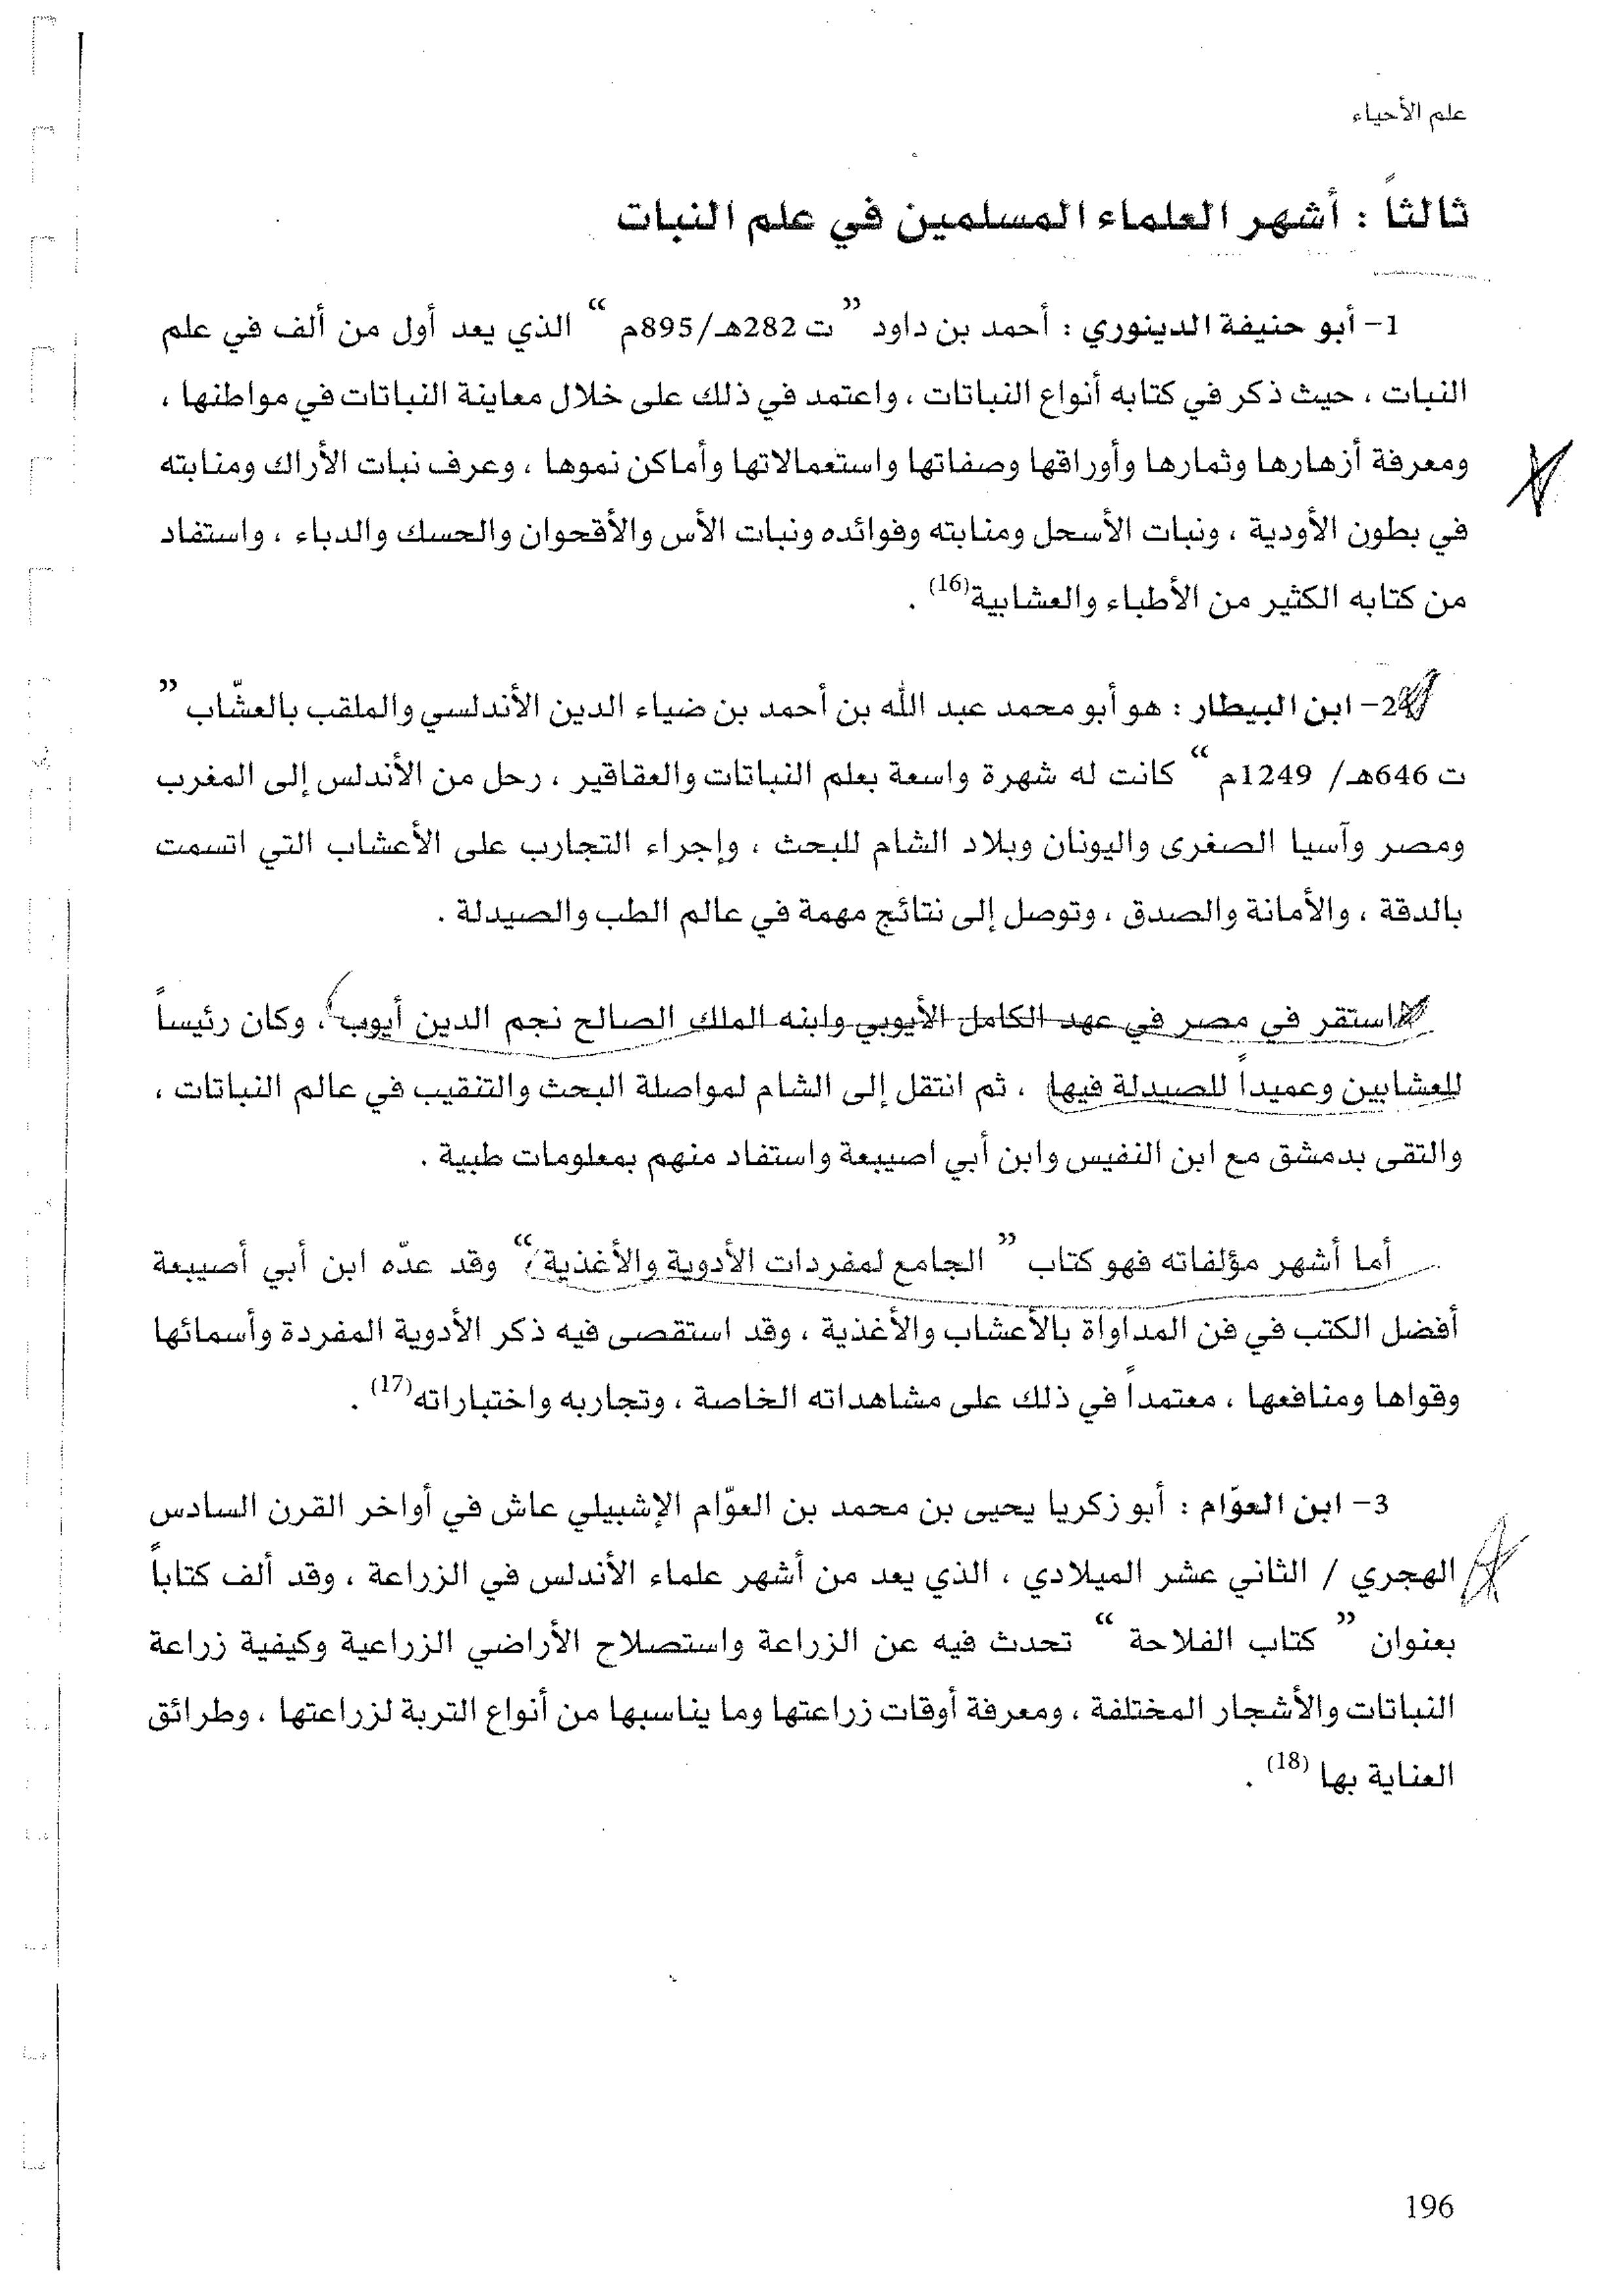 علم الأحياء
ثالثاً : أشهر العلماء المسلمين في علم النبات
1- أبو حنيفة الدينوري : أحمد بن داود " ت 282هـ/895م " الذي يعد أول من ألف في علم
النبات ، حيث ذكر في كتابه أنواع النباتات ، واعتمد في ذلك على خلال معاينة النباتات في مواطنها ،
ومعرفة أزهارها وثمارها وأوراقها وصفاتها واستعمالاتها وأماكن نموها ، وعرف نبات الأراك ومنابته
في بطون الأودية ، ونبات الأسحل ومنابته وفوائده ونبات الأس والأقحوان والحسك والدباء ، واستفاد
من كتابه الكثير من الأطباء والعشابية(16) .
2- ابن البيطار : هو أبو محمد عبد الله بن أحمد بن ضياء الدين الأندلسي والملقب بالعشّاب "
ت 646هـ/ 1249م " كانت له شهرة واسعة بعلم النباتات والعقاقير ، رحل من الأندلس إلى المغرب
ومصر وآسيا الصغرى واليونان وبلاد الشام للبحث ، وإجراء التجارب على الأعشاب التي اتسمت
بالدقة ، والأمانة والصدق ، وتوصل إلى نتائج مهمة في عالم الطب والصيدلة .
استقر في مصر في عهد الكامل الأيوبي وابنه الملك الصالح نجم الدين أيوب ، وكان رئيساً
للعشابين وعميداً للصيدلة فيها ، ثم انتقل إلى الشام لمواصلة البحث والتنقيب في عالم النباتات ،
والتقى بدمشق مع ابن النفيس وابن أبي اصيبعة واستفاد منهم بمعلومات طبية .
أما أشهر مؤلفاته فهو كتاب " الجامع لمفردات الأدوية والأغذية " وقد عدّه ابن أبي أصيبعة
أفضل الكتب في فن المداواة بالأعشاب والأغذية ، وقد استقصى فيه ذكر الأدوية المفردة وأسمائها
وقواها ومنافعها ، معتمداً في ذلك على مشاهداته الخاصة ، وتجاربه واختباراته(17) .
3- ابن العوّام : أبو زكريا يحيى بن محمد بن العوّام الإشبيلي عاش في أواخر القرن السادس
الهجري / الثاني عشر الميلادي ، الذي يعد من أشهر علماء الأندلس في الزراعة ، وقد ألف كتاباً
بعنوان " كتاب الفلاحة " تحدث فيه عن الزراعة واستصلاح الأراضي الزراعية وكيفية زراعة
النباتات والأشجار المختلفة ، ومعرفة أوقات زراعتها وما يناسبها من أنواع التربة لزراعتها ، وطرائق
العناية بها (18) .
196